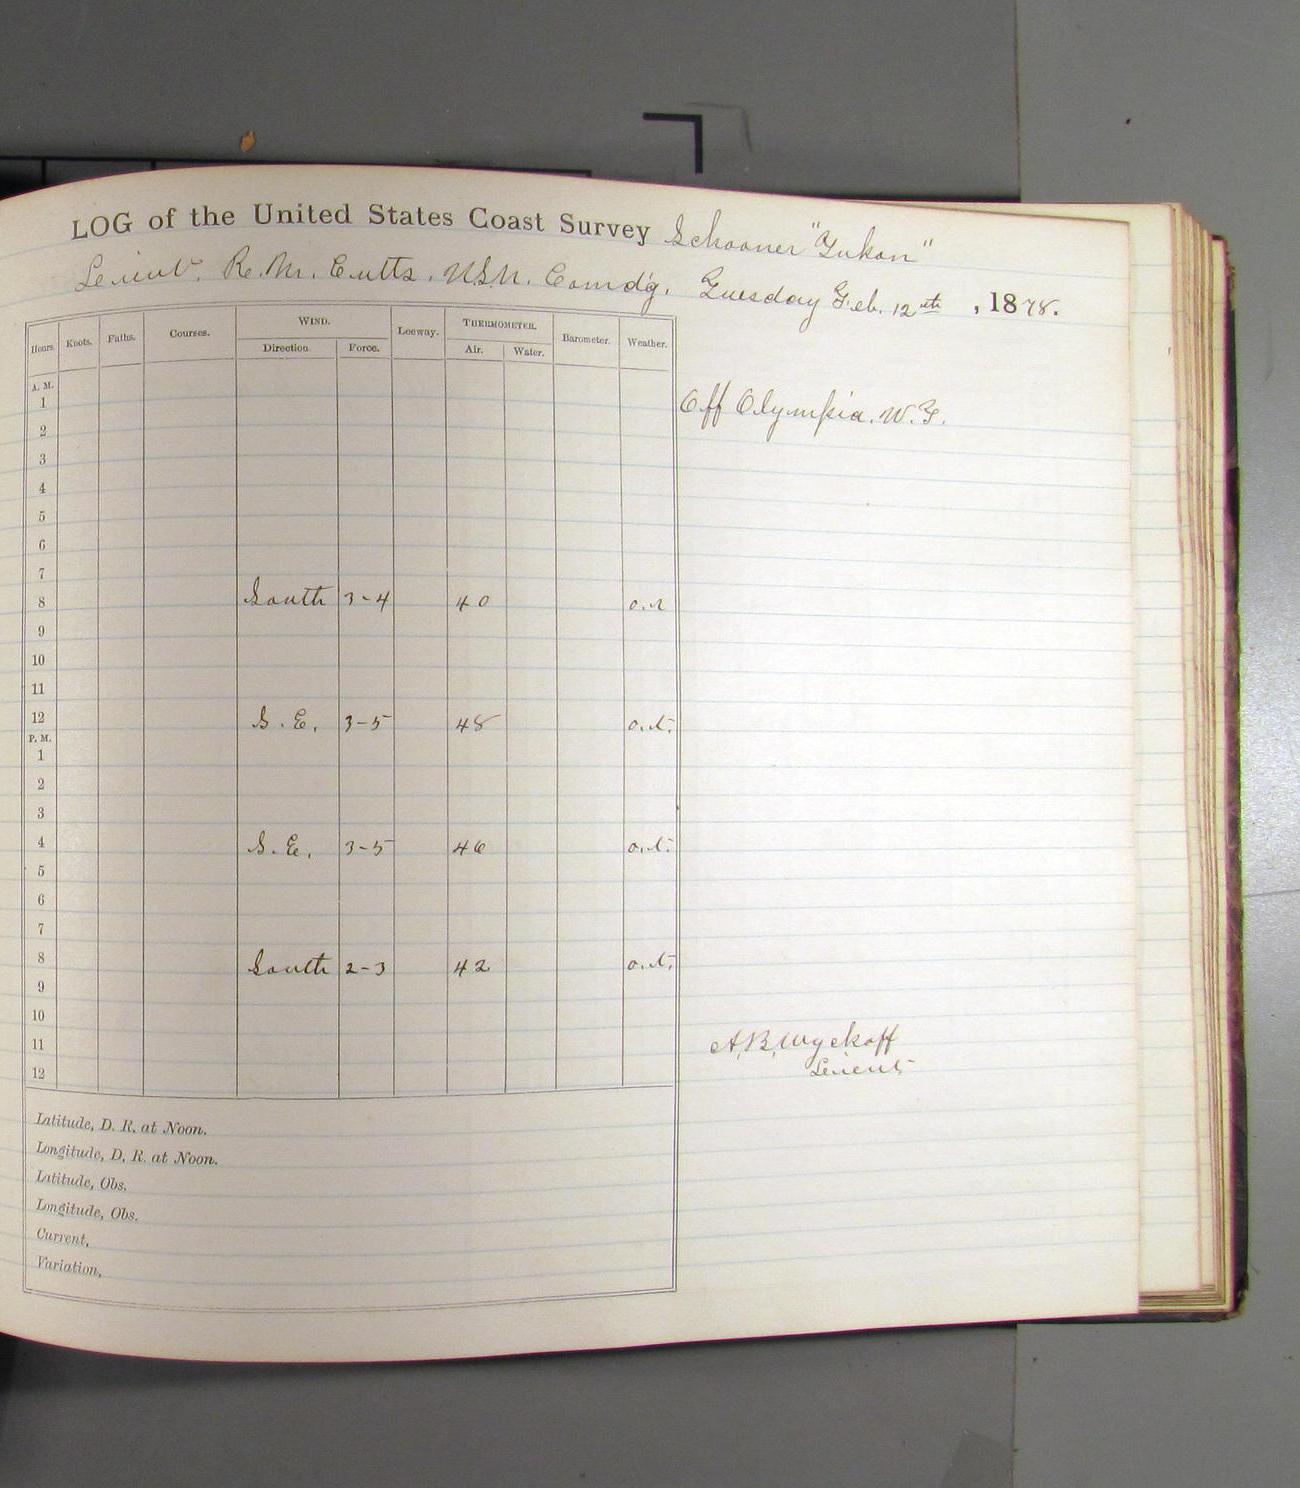 LOG of the United States Coast Survey Schooner "Yukon"
Lieut. R. M. Cutts. U.S.N. Comd'g. Tuesday Feb. 12th, 1878.
Hours. Knots. Faths. Courses. WIND. Leeway. THERMOMETER. Barometer. Weather.
Direction. Force. Air. Water.
A. M.
1 Off Olympia. W.T.
2
3
4
5
6
7
8 South 3-4 40
9
10
11
12 S. E. 3-5 48
P. M.
1
2
3
4 S. E. 3-5 46
5
6
7
8 South 2-3 42
9
10
11 A. B. Wyckoff
12 Lieut
Latitude, D. R. at Noon.
Longitude, D. R. at Noon.
Latitude, Obs.
Longitude, Obs.
Current,
Variation,